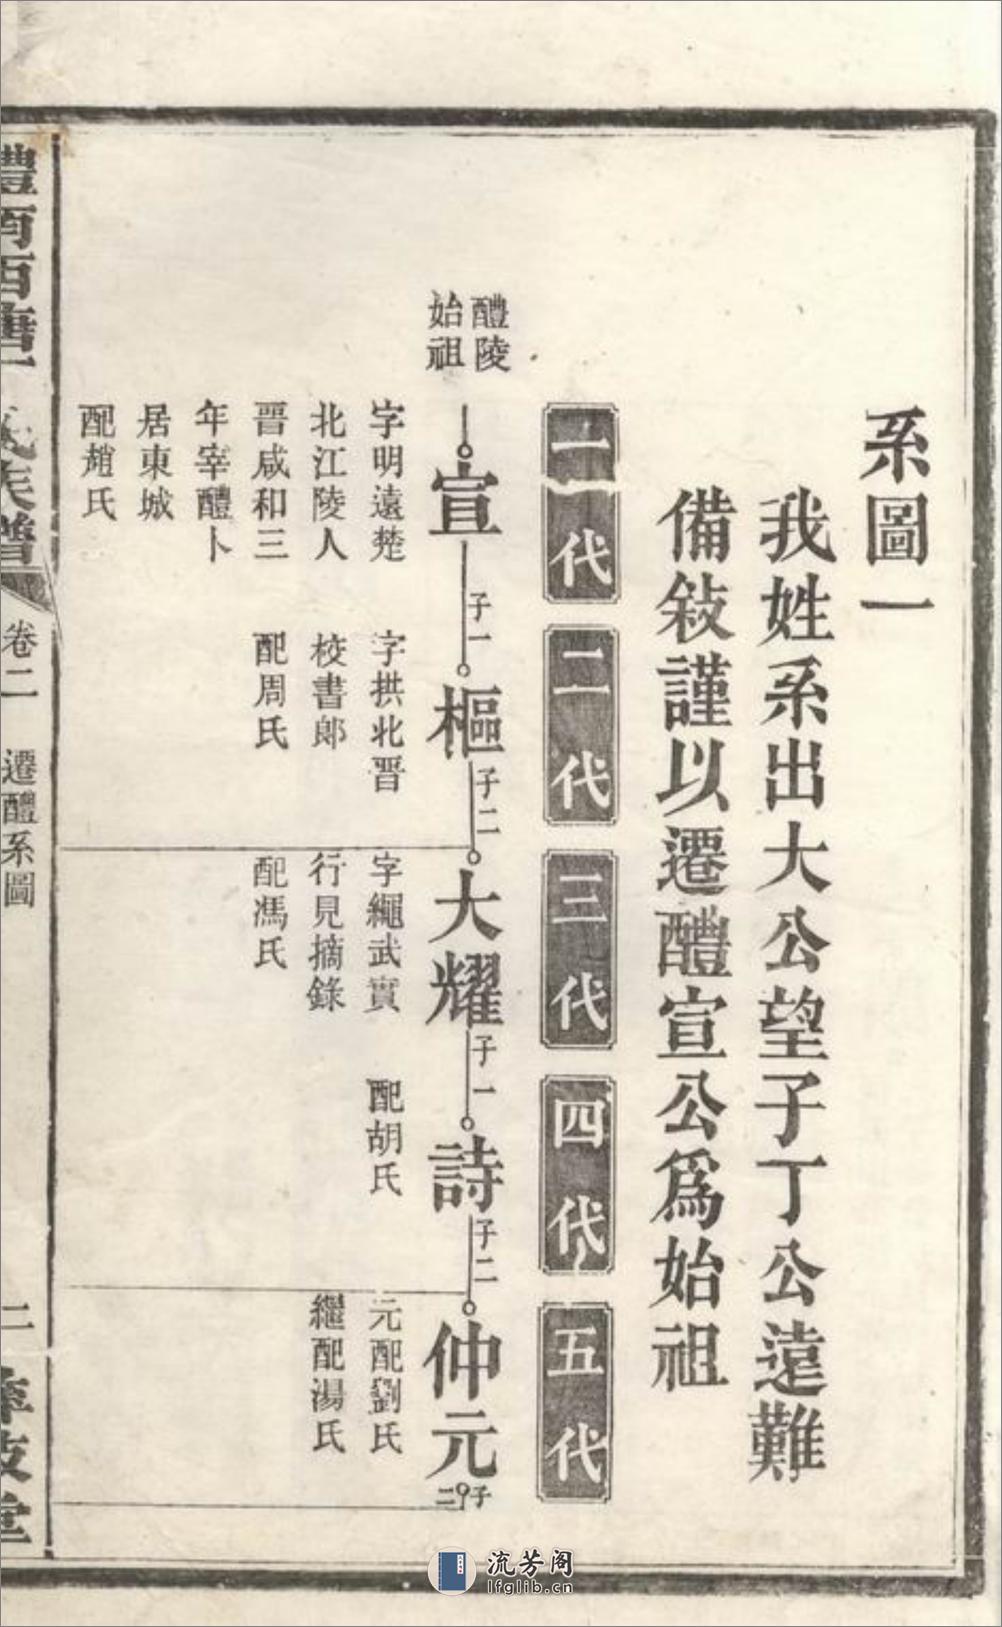 系圖一
我姓系出大公望子丁公遠難
備敍謹以遷醴宣公爲始祖
一代
二代
三代
四代
五代
醴陵
始祖
宣
子一
樞
子二
大耀
子一
詩
子二
仲元
子二
字明遠楚
北江陵人
晉咸和三
年宰醴卜
居東城
配趙氏
字拱北晉
校書郞
配周氏
字繩武實
行見摘錄
配馮氏
配胡氏
元配劉氏
繼配湯氏
醴南西塘丁氏族譜
卷二 遷醴系圖
二
堂
流芳阁
lfglib.cn